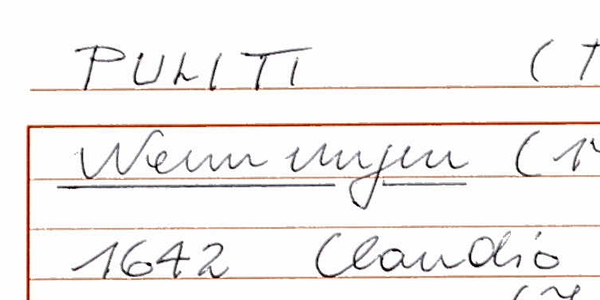 PULITI (
Wenn ungen (1
1642 Claudio